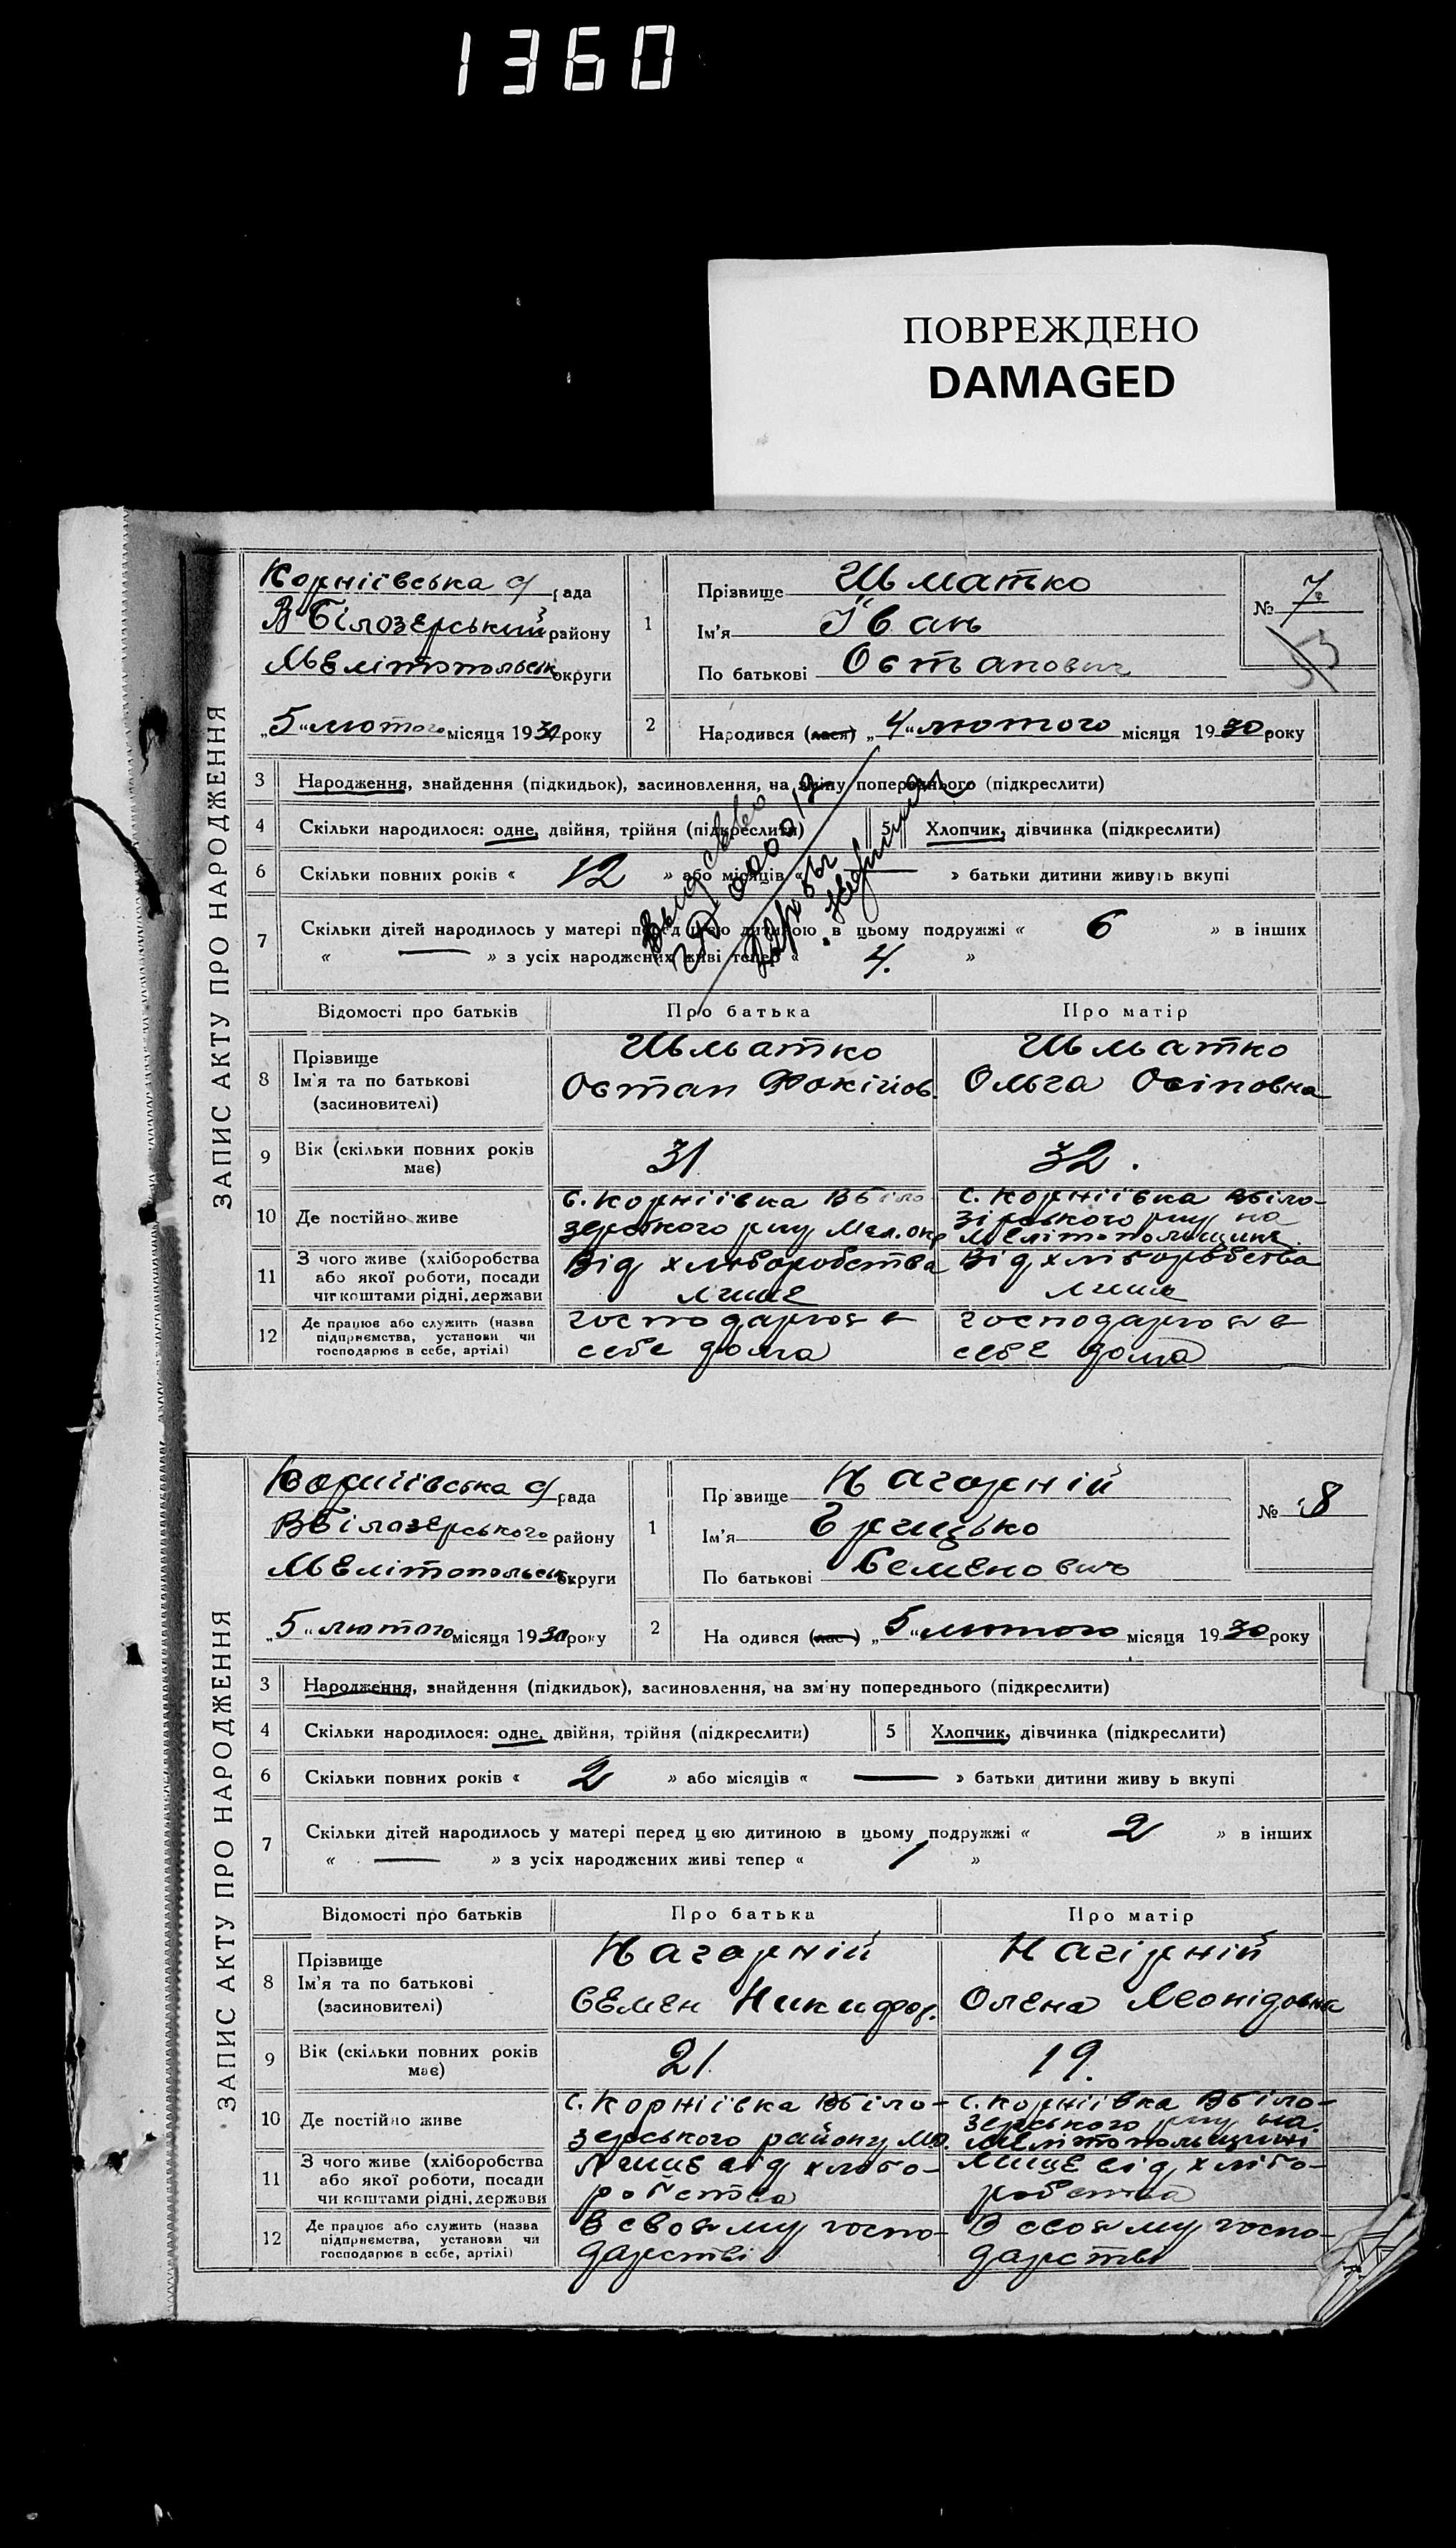 1360
ПОВРЕЖДЕНО
DAMAGED
ЗАПИС АКТУ ПРО НАРОДЖЕННЯ
Корніівська с/рада
В Білозерський району
Мелітопольськ округи
„5“ лютого місяця 1930 року
1
Прізвище Шматко
Ім'я Іван
По батькові Остапович
№ 7
2
Народився (лася) „4“ лютого місяця 1930 року
3 Народження, знайдення (підкидьок), засиновлення, на зміну попереднього (підкреслити)
4 Скільки народилося: одне, двійня, трійня (підкреслити) 5 Хлопчик, дівчинка (підкреслити)
6 Скільки повних років « 12 » або місяців « — » батьки дитини живуть вкупі
7 Скільки дітей народилось у матері перед цією дитиною в цьому подружжі « 6 » в інших
« — » з усіх народжених живі тепер « 4. »
Відомості про батьків Про батька Про матір
8 Прізвище
Ім'я та по батькові
(засиновителі)
Шматко
Остап Фокійов.
Шматко
Ольга Осіповна
9 Вік (скільки повних років має)
31
32.
10 Де постійно живе
с. Корніівка Вбіло
зерського р-ну Мел. окр
с. Корніівка Вбіло-
зірського р-ну на
Мелітопольщині.
11 З чого живе (хліборобства
або якої роботи, посади
чи коштами рідні, держави
Від хліборобства
лише
Від хліборобства
лише
12 Де працює або служить (назва
підприємства, установи чи
господарює в себе, артілі)
господарює в
себе дома
господарює в
себе дома
ЗАПИС АКТУ ПРО НАРОДЖЕННЯ
Корніівська с/рада
ВБілозерського району
Мелітопольськ. округи
„5“ лютого місяця 1930 року
1
Пр звище Нагорній
Ім'я Грицько
По батькові Семенович
№ 8
2
На одився (лас ) „5“ лютого місяця 1930 року
3 Народження, знайдення (підкидьок), засиновлення, на зм ну попереднього (підкреслити)
4 Скільки народилося: одне, двійня, трійня (підкреслити) 5 Хлопчик, дівчинка (підкреслити)
6 Скільки повних років « 2 » або місяців « — » батьки дитини живу ь вкупі
7 Скільки дітей народилось у матері перед цією дитиною в цьому подружжі « 2 » в інших
« — » з усіх народжених живі тепер « 1 »
Відомості про батьків Про батька Про матір
8 Прізвище
Ім'я та по батькові
(засиновителі)
Нагорній
Семен Никифор.
Нагірній
Олена Леонідовна
9 Вік (скільки повних років має)
21.
19.
10 Де постійно живе
с. Корніівка Вбіло-
зерського району
с. Корніівка Вбіло-
зерського р-ну на
Мелітопольщині
11 З чого живе (хліборобства
або якої роботи, посади
чи коштами рідні, держави
Лише від хлібо-
робства
Лише від хлібо-
робства
12 Де працює або служить (назва
підприємства, установи чи
господарює в себе, артілі)
В своєму госпо-
дарстві
В своєму госпо-
дарстві